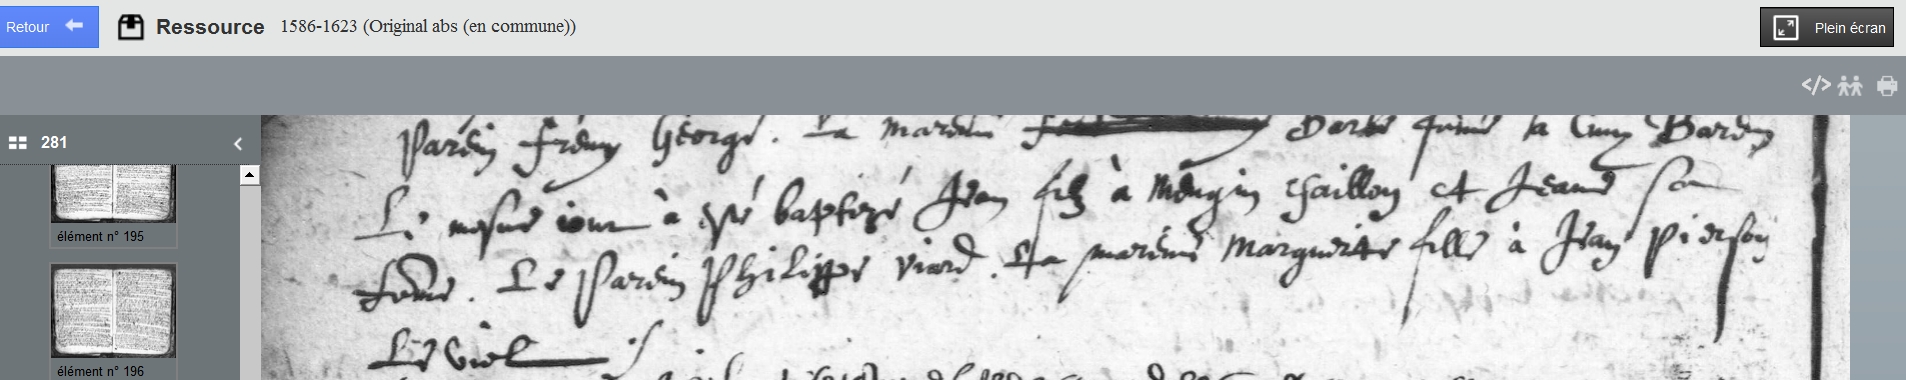 Retour
Ressource 1586-1623 (Original abs (en commune))
Plein écran
281
élément n° 195
élément n° 196
Parein George. La mareine Barbe
Le mesme iour à esté baptizé Jean filz à Mengin et Jeanne sa
feme. Le Parein Philippe Viard. La mareine Marguerite fille à Jean Pierson
Le viel